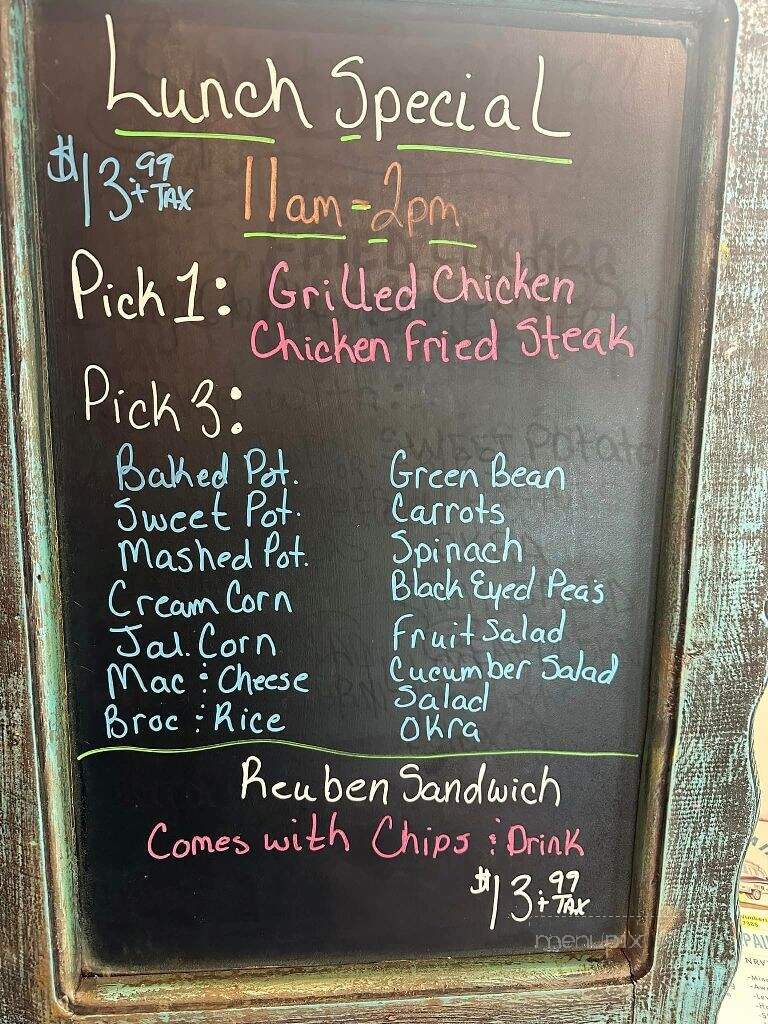 Lunch Special
$13.99 + TAX 11am-2pm
Pick 1: Grilled Chicken
Chicken Fried Steak
Pick 3:
Baked Pot. Green Bean
Sweet Pot. Carrots
Mashed Pot. Spinach
Cream Corn Black Eyed Pea's
Jal. Corn Fruit Salad
Mac & Cheese Cucumber Salad
Broc & Rice Salad
Okra
Reuben Sandwich
Comes with Chips & Drink
$13.99 + TAX
menupix